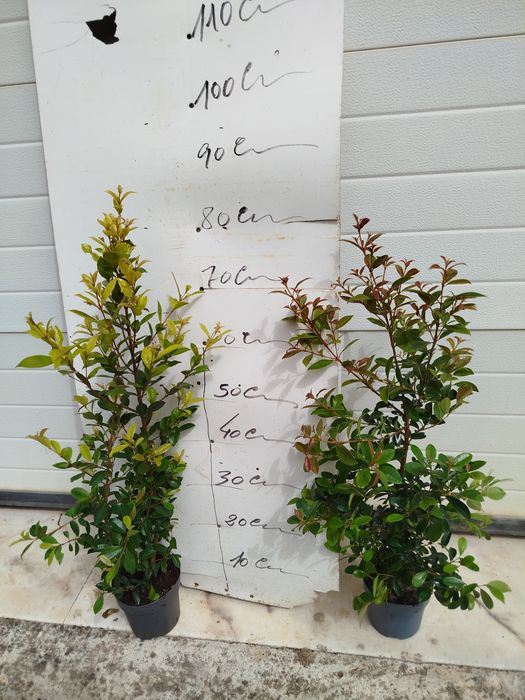 110 Cm
100 Cm
90 Cm
80 Cm
70 Cm
0 Cm
50 Cm
40 Cm
30 Cm
20 Cm
10 Cm